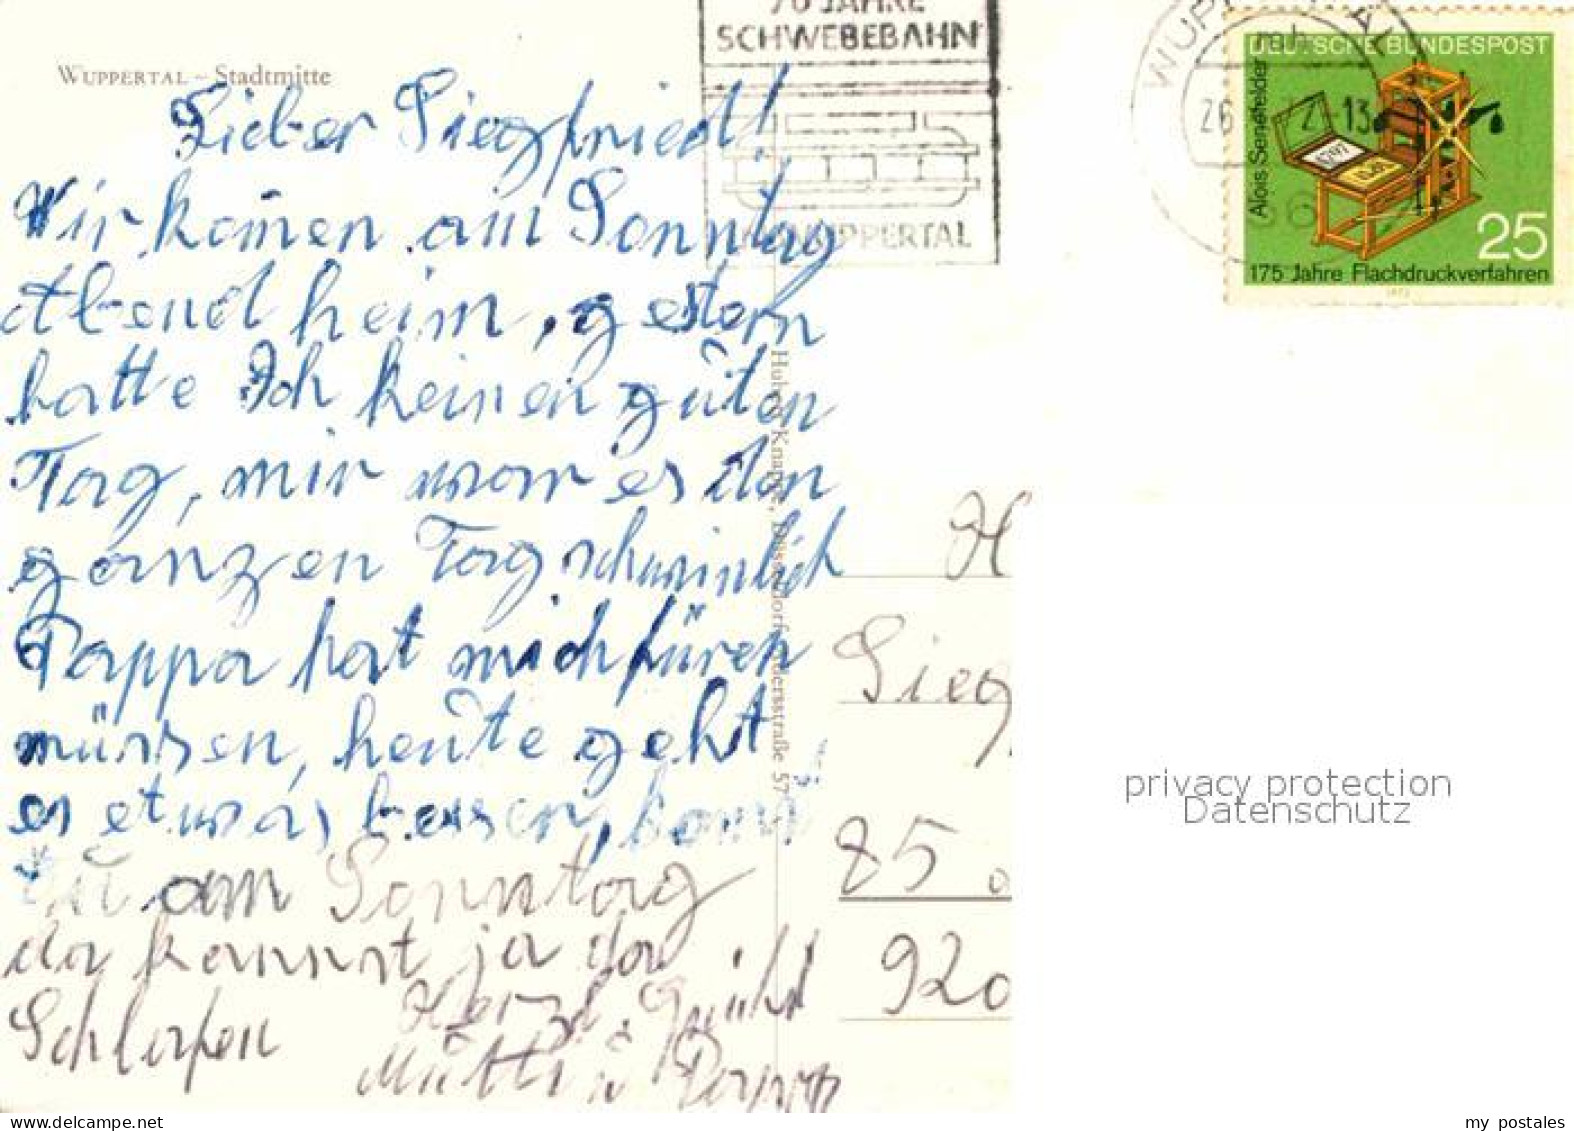 70 JAHRE
SCHWEBEBAHN
WUPPERTAL
DEUTSCHE BUNDESPOST
Alois Senefelder
25
175 Jahre Flachdruckverfahren
WUPPERTAL
26
13
56
WUPPERTAL – Stadtmitte
Lieber Siegfried!
Wir komen am Sonntag
Abend heim, gestern
hatte Ich keinen guten
Tag, mir war es den
ganzen Tag schwinlich
Pappa hat mich füren
müssen, heute geht
es etwas besser, komst
du am Sonntag
da kannst ja da
Schlafen
Herzl. Grüße
Mutti u Pappa
Knappe, Düsseldorf
57
H
Sieg
85
920
privacy protection
Datenschutz
my postales
delcampe.net